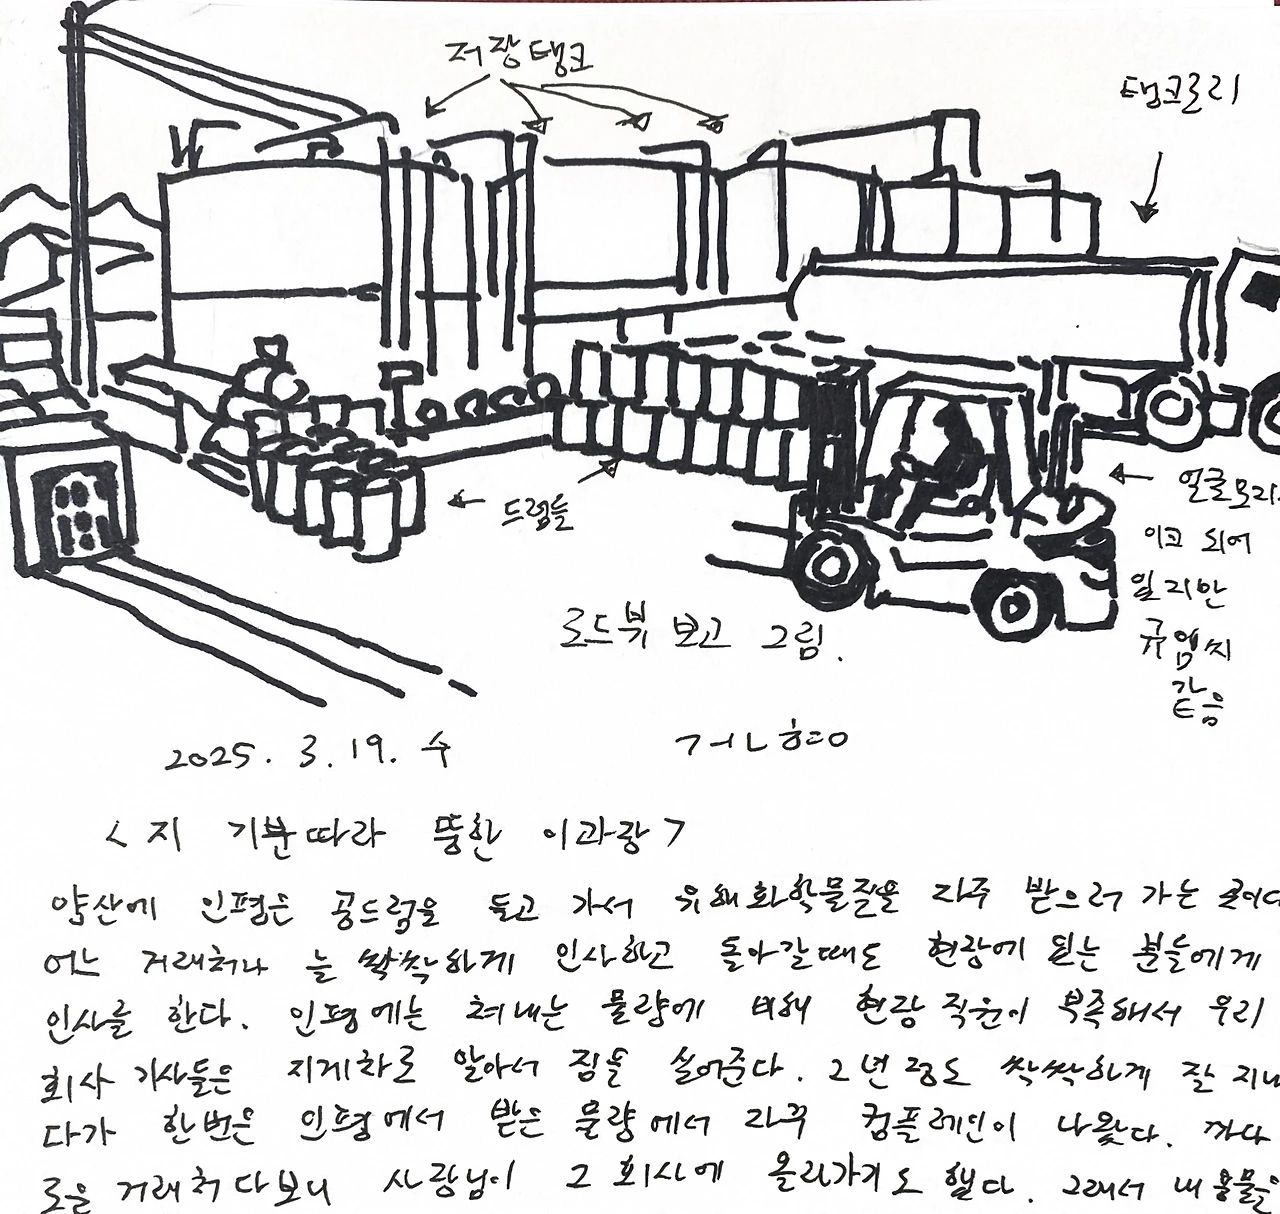 저장탱크
탱크로리
드럼들
얼굴모자
이크 되어
있지만
규엄씨
같음
로드뷰 보고 그림.
2025. 3. 19. 수
거ㄴㅎ
<지 기분따라 뚱한 이과장>
약산에 인평은 공드럼을 들고 가서 유해화학물질을 자주 받으러 가는
어느 거래처나 늘 싹싹하게 인사하고 돌아갈때도 현장에 있는 분들에게
인사를 한다. 인평에는 쳐내는 물량에 비해 현장직원이 부족해서 우리
회사 기사들은 지게차로 알아서 짐을 실어준다. 2년 정도 싹싹하게 잘 지내
다가 한번은 인평에서 받은 물량에서 자꾸 컴플레인이 나왔다. 까다
로운 거래처다보니 사장님이 그 회사에 올라가기도 했다. 그래서 내용물을